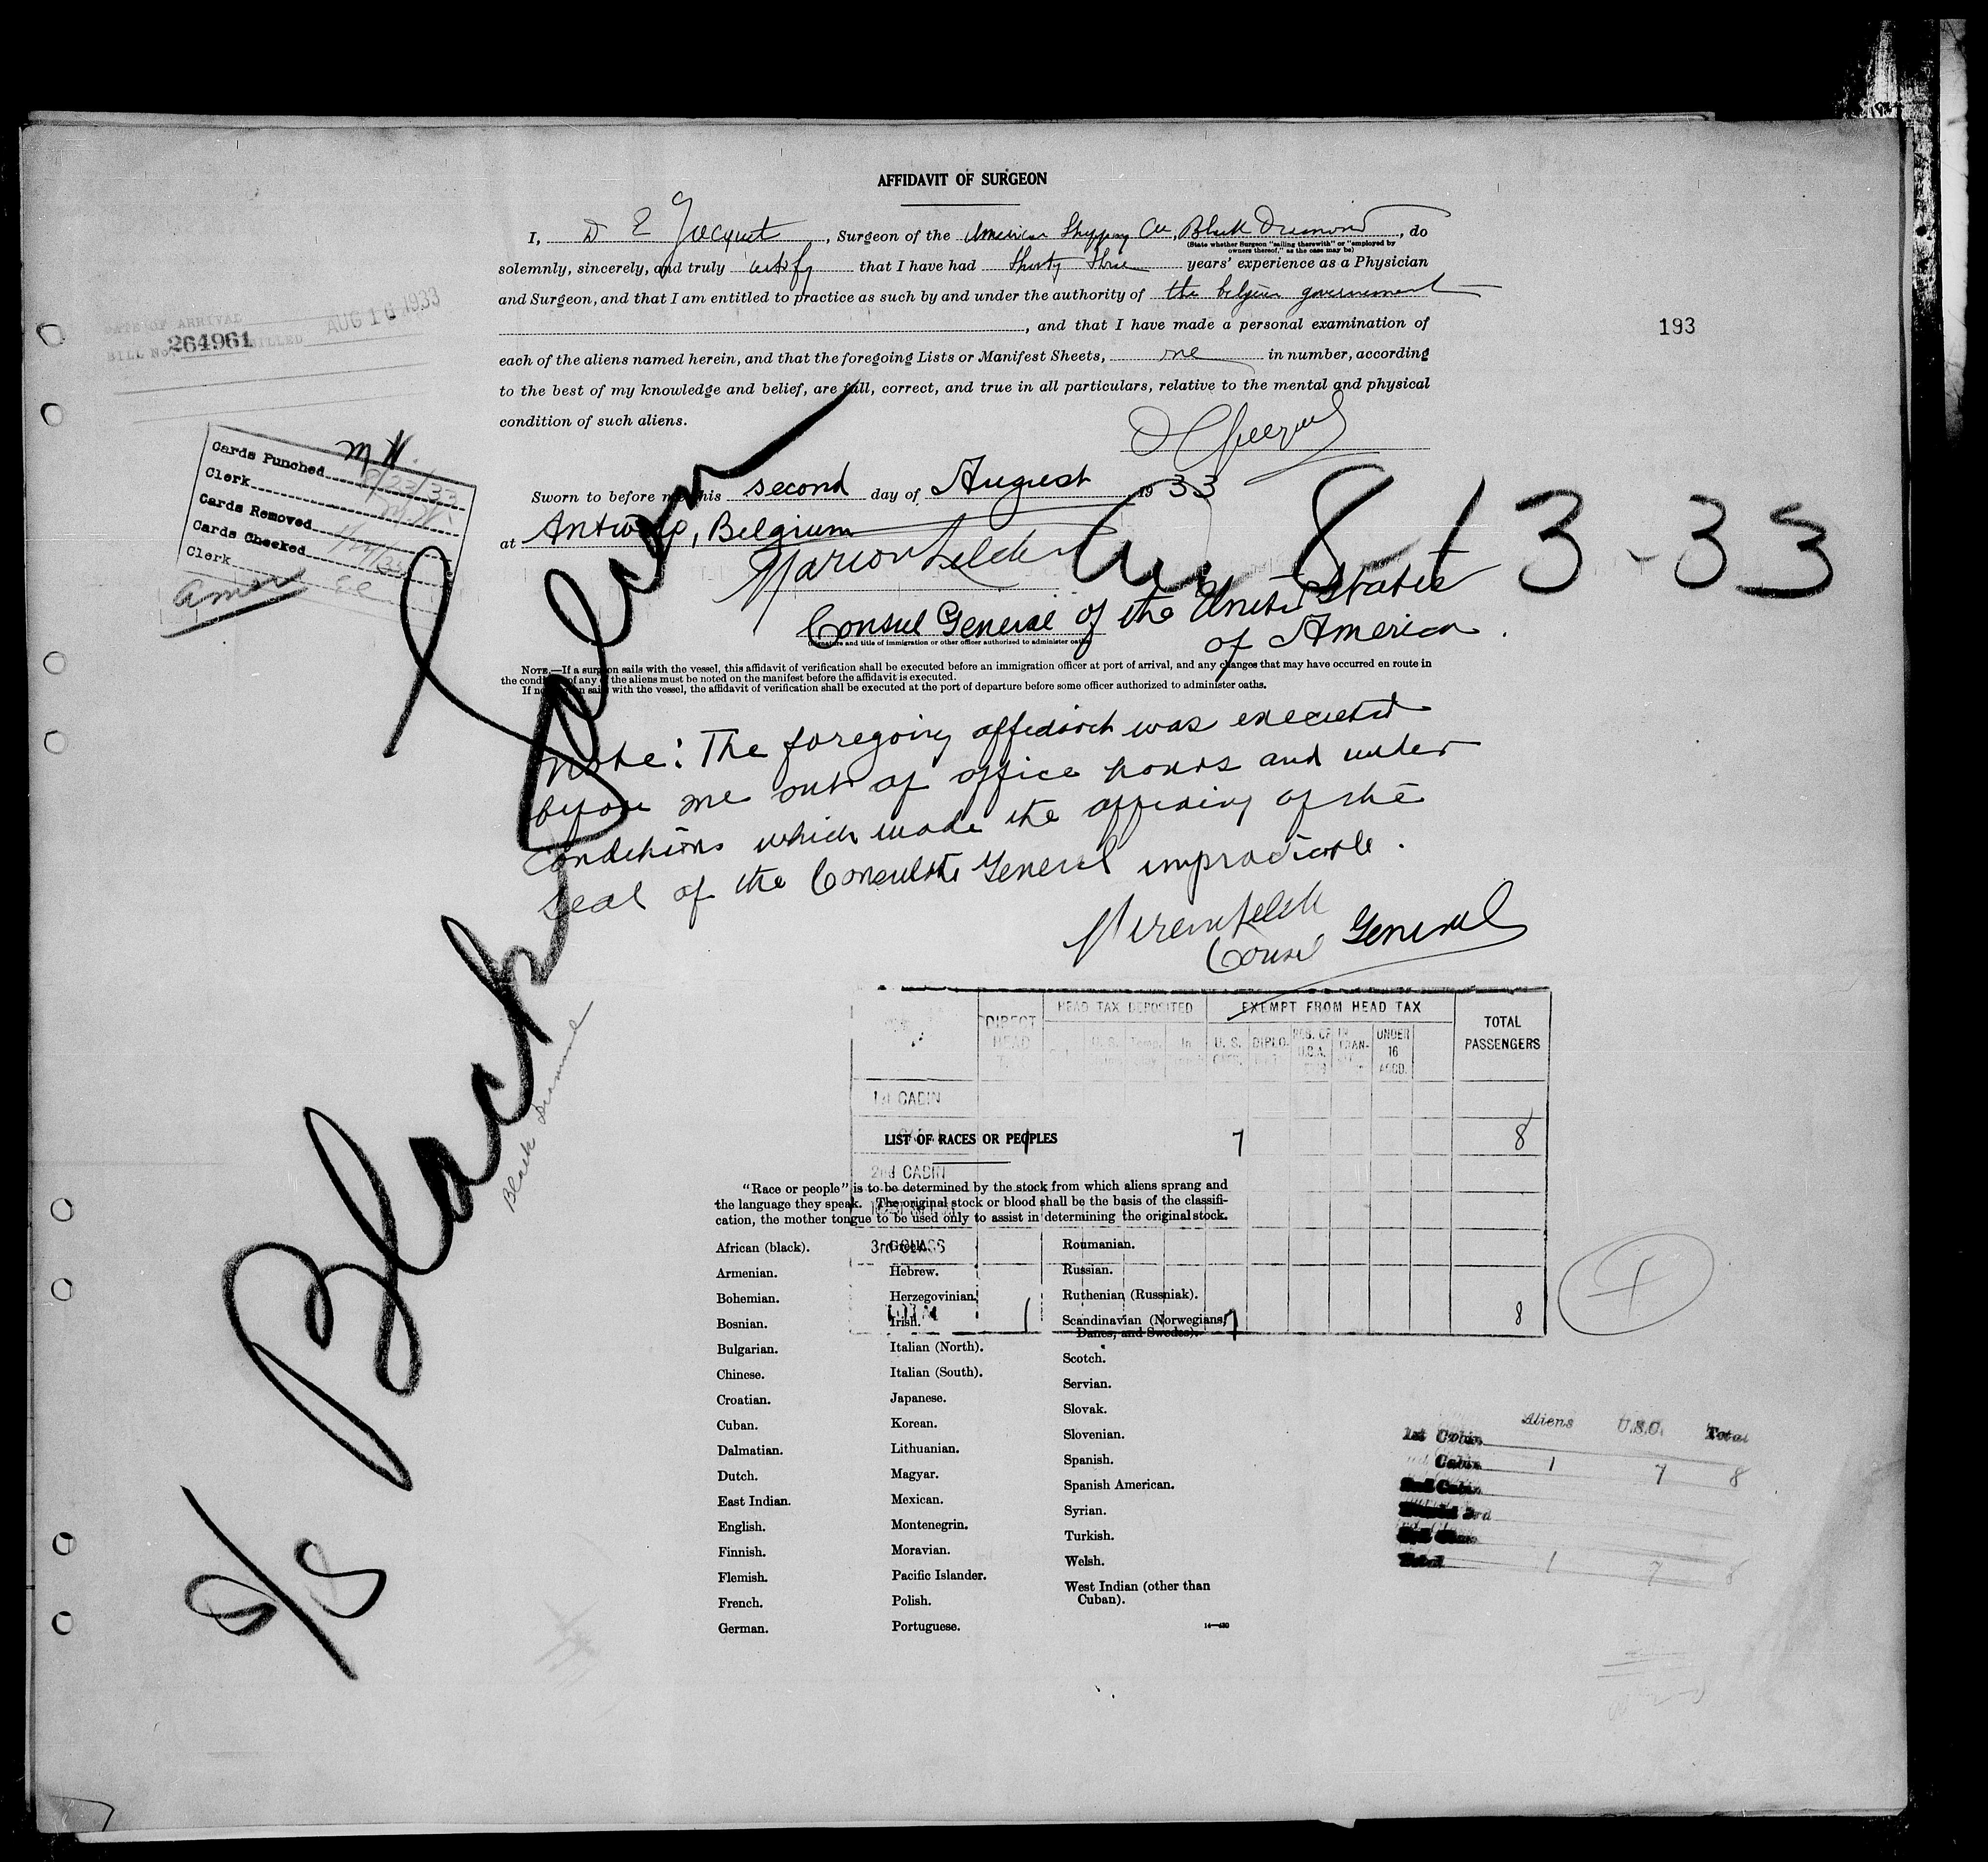 AFFIDAVIT OF SURGEON
I, D E Jacquet, Surgeon of the American Shipping Co, Black Diamond, do
(State whether Surgeon "sailing therewith" or "employed by
owners thereof," as the case may be)
solemnly, sincerely, and truly certify that I have had Thirty Three years' experience as a Physician
and Surgeon, and that I am entitled to practice as such by and under the authority of the belgian government
, and that I have made a personal examination of
193
DATE OF ARRIVAL
BILL No. 264961 BILLED AUG 16 1933
each of the aliens named herein, and that the foregoing Lists or Manifest Sheets, one in number, according
to the best of my knowledge and belief, are full, correct, and true in all particulars, relative to the mental and physical
condition of such aliens.
Cards Punched M.H. 8/23/33
Clerk M.H.
Cards Removed
Cards Checked
Clerk
Sworn to before me this second day of August 1933
at Antwerp, Belgium
Marion Letcher
8-13-33
Consul General of the United States
of America.
(Signature and title of immigration or other officer authorized to administer oaths)
NOTE.—If a surgeon sails with the vessel, this affidavit of verification shall be executed before an immigration officer at port of arrival, and any changes that may have occurred en route in
the condition of any of the aliens must be noted on the manifest before the affidavit is executed.
If no surgeon sails with the vessel, the affidavit of verification shall be executed at the port of departure before some officer authorized to administer oaths.
Note: The foregoing affidavit was executed
before me out of office hours and under
conditions which made the affixing of the
seal of the Consulate General impracticable.
Marion Letcher
Consul General
S/S Black Falcon
Black Diamond
DIRECT HEAD TAX
HEAD TAX DEPOSITED
EXEMPT FROM HEAD TAX
TOTAL PASSENGERS
U. S. DIPLO. RES. OF U.S.A. IN TRAN- UNDER 16 ACCD.
1st CABIN
1 7 8
2nd CABIN
3rd CLASS
TOTAL 1 7 8
LIST OF RACES OR PEOPLES
"Race or people" is to be determined by the stock from which aliens sprang and
the language they speak. The original stock or blood shall be the basis of the classifi-
cation, the mother tongue to be used only to assist in determining the original stock.
African (black).
Armenian.
Bohemian.
Bosnian.
Bulgarian.
Chinese.
Croatian.
Cuban.
Dalmatian.
Dutch.
East Indian.
English.
Finnish.
Flemish.
French.
German.
Greek.
Hebrew.
Herzegovinian.
Irish.
Italian (North).
Italian (South).
Japanese.
Korean.
Lithuanian.
Magyar.
Mexican.
Montenegrin.
Moravian.
Pacific Islander.
Polish.
Portuguese.
Roumanian.
Russian.
Ruthenian (Russniak).
Scandinavian (Norwegians,
Danes, and Swedes).
Scotch.
Servian.
Slovak.
Slovenian.
Spanish.
Spanish American.
Syrian.
Turkish.
Welsh.
West Indian (other than
Cuban).
14—430
Aliens U.S.C. Total
1st Cabin
Cabin 1 7 8
2nd Cabin
Total 1 7 8